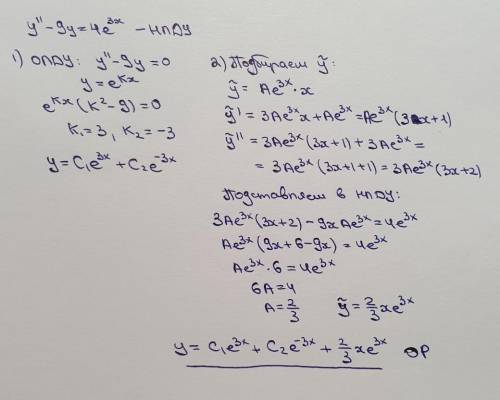 y'' - 9y = 4e^{3x} - НЛДУ
1) ОЛДУ: y'' - 9y = 0
y = e^{kx}
e^{kx}(k² - 9) = 0
k₁ = 3, k₂ = -3
y = C₁e^{3x} + C₂e^{-3x}
2) Подбираем ỹ:
ỹ = Ae^{3x}·x
ỹ' = 3Ae^{3x}x + Ae^{3x} = Ae^{3x}(3x+1)
ỹ'' = 3Ae^{3x}(3x+1) + 3Ae^{3x} =
= 3Ae^{3x}(3x+1+1) = 3Ae^{3x}(3x+2)
Подставляем в НЛДУ:
3Ae^{3x}(3x+2) - 9xAe^{3x} = 4e^{3x}
Ae^{3x}(9x+6-9x) = 4e^{3x}
Ae^{3x}·6 = 4e^{3x}
6A = 4
A = 2/3 ỹ = 2/3 xe^{3x}
y = C₁e^{3x} + C₂e^{-3x} + 2/3 xe^{3x} ОР